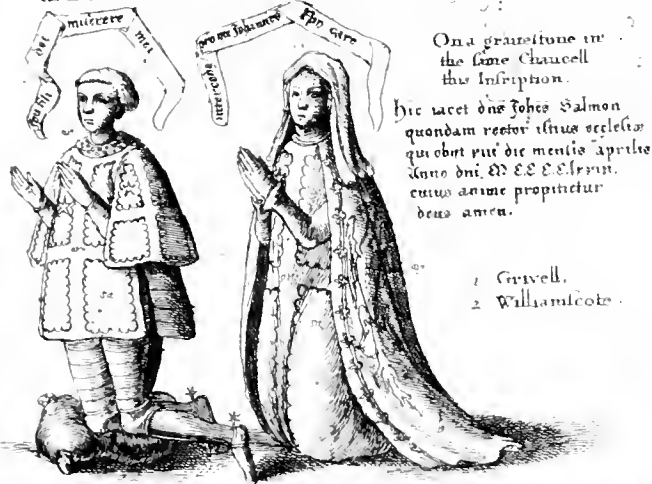 ihu fili dei miserere mei
intercede pro me Johannes xpo care
On a gravestone in
the same Chancell
this Inscription.
Hic iacet dns Johes Salmon
quondam rector istius ecclesiæ
qui obijt die mensis aprilis
Anno dni. M CCCC
cuius anime propitietur
deus amen.
1 Grivell.
2 Williamscote.